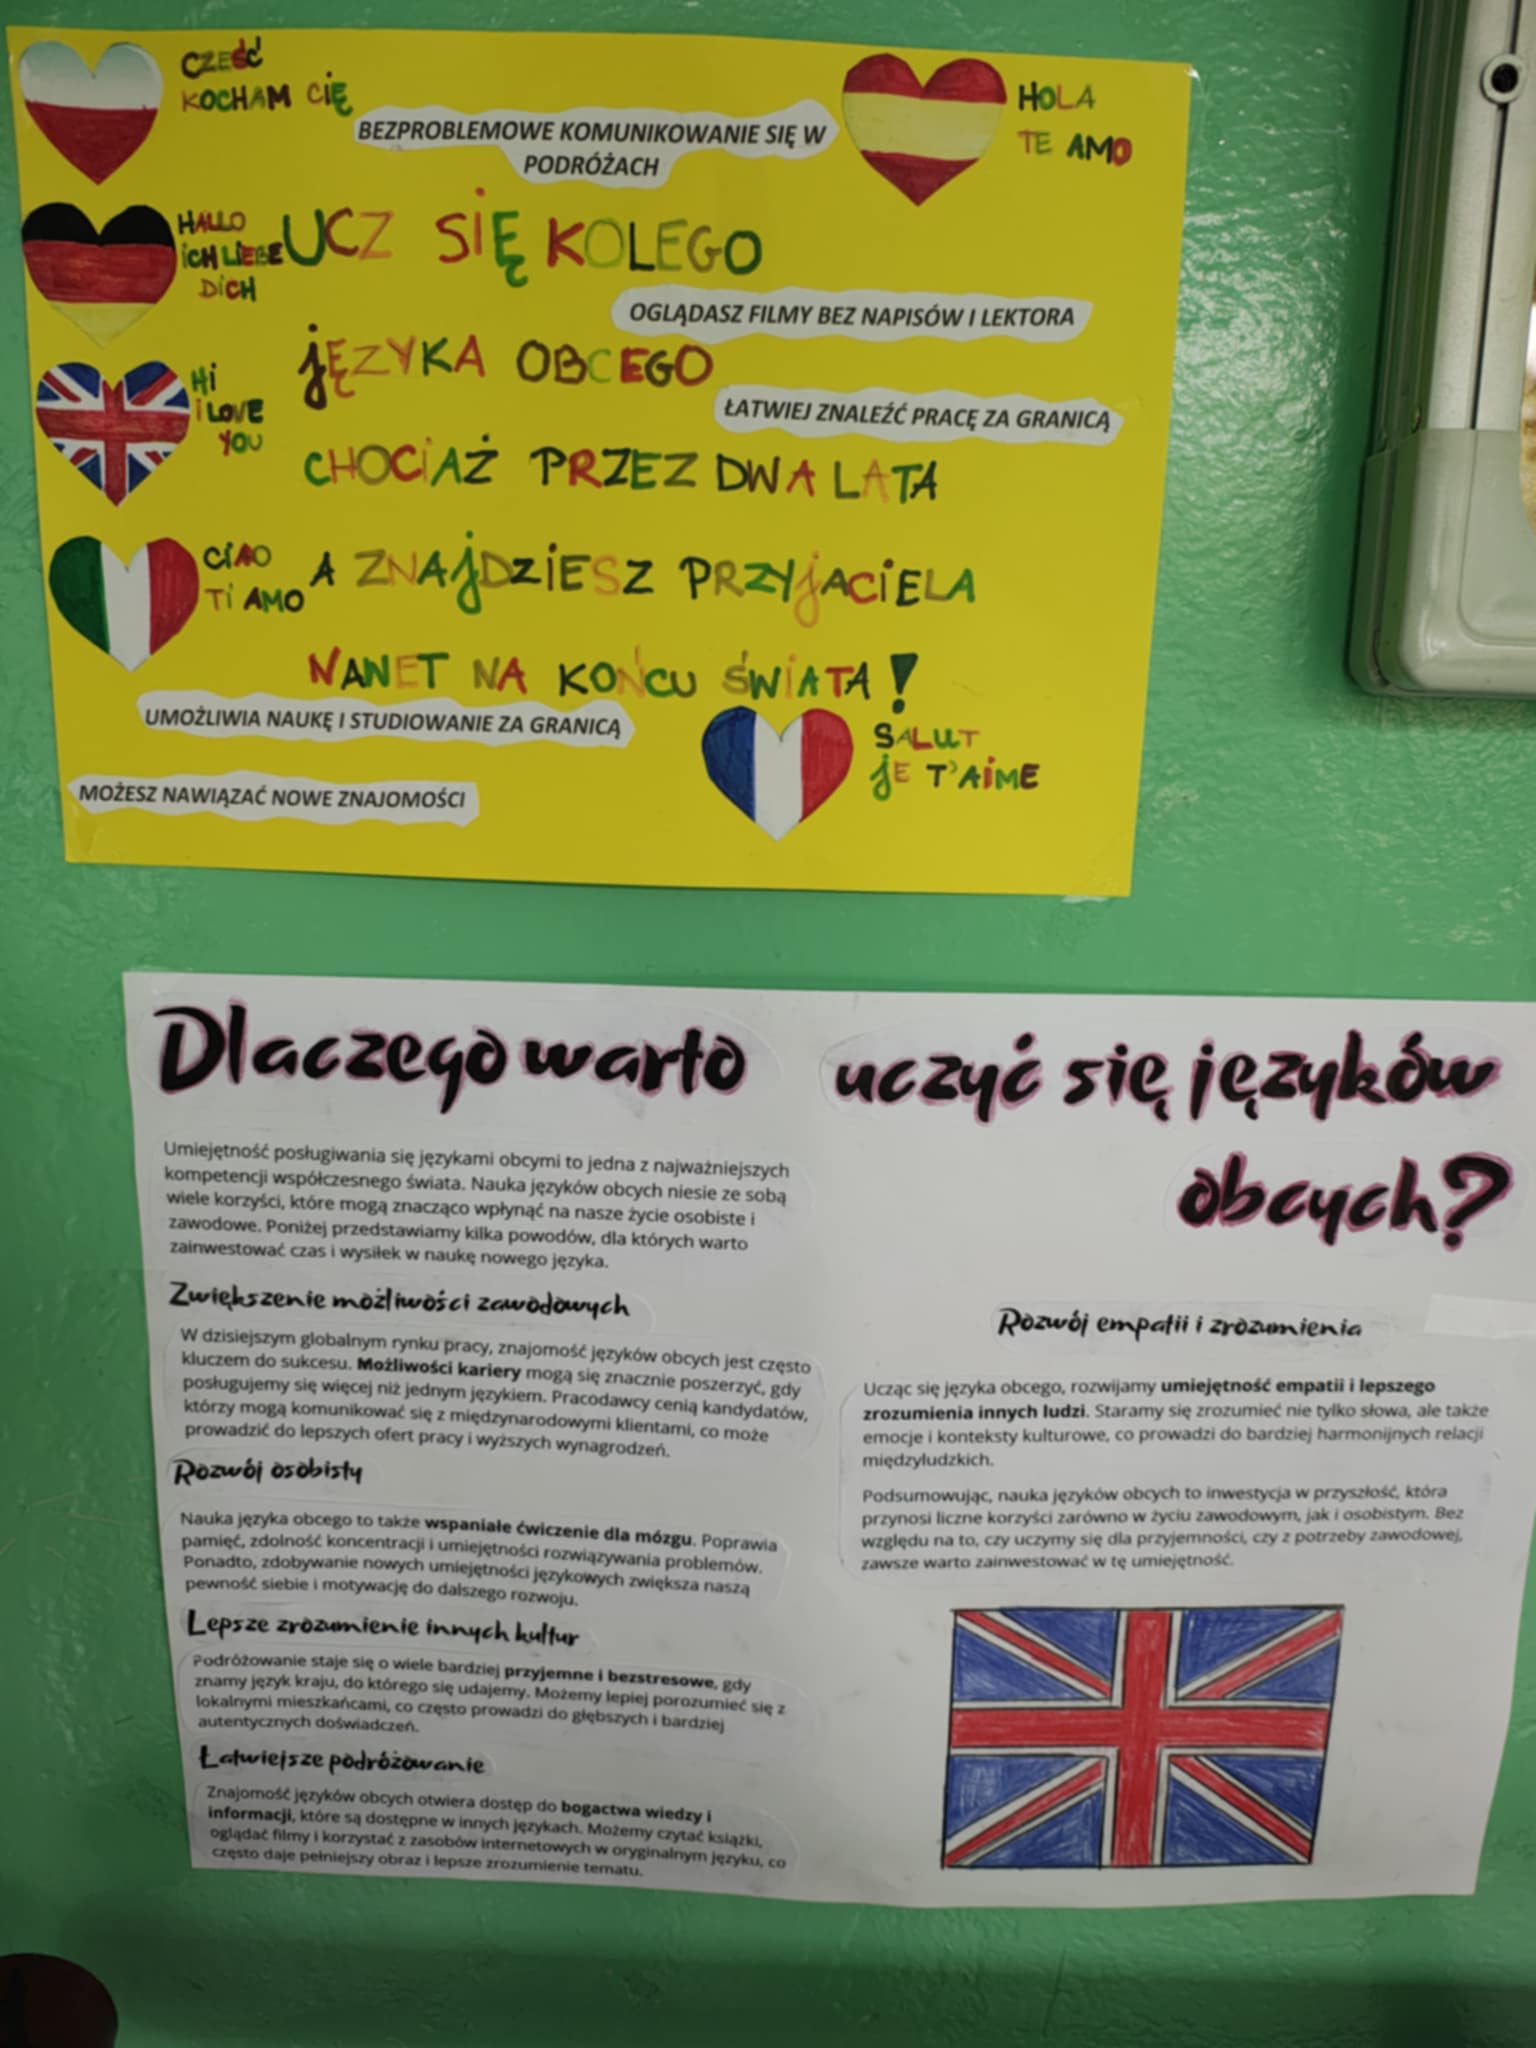 CZEŚĆ
KOCHAM CIĘ
BEZPROBLEMOWE KOMUNIKOWANIE SIĘ W
PODRÓŻACH
HOLA
TE AMO
HALLO
ICH LIEBE
DICH
UCZ SIĘ KOLEGO
OGLĄDASZ FILMY BEZ NAPISÓW I LEKTORA
JĘZYKA OBCEGO
HI
I LOVE
YOU
ŁATWIEJ ZNALEŹĆ PRACĘ ZA GRANICĄ
CHOCIAŻ PRZEZ DWA LATA
CIAO
TI AMO
A ZNAJDZIESZ PRZYJACIELA
NAWET NA KOŃCU ŚWIATA!
UMOŻLIWIA NAUKĘ I STUDIOWANIE ZA GRANICĄ
SALUT
JE T'AIME
MOŻESZ NAWIĄZAĆ NOWE ZNAJOMOŚCI
Dlaczego warto uczyć się języków
obcych?
Umiejętność posługiwania się językami obcymi to jedna z najważniejszych
kompetencji współczesnego świata. Nauka języków obcych niesie ze sobą
wiele korzyści, które mogą znacząco wpłynąć na nasze życie osobiste i
zawodowe. Poniżej przedstawiamy kilka powodów, dla których warto
zainwestować czas i wysiłek w naukę nowego języka.
Zwiększenie możliwości zawodowych
W dzisiejszym globalnym rynku pracy, znajomość języków obcych jest często
kluczem do sukcesu. Możliwości kariery mogą się znacznie poszerzyć, gdy
posługujemy się więcej niż jednym językiem. Pracodawcy cenią kandydatów,
którzy mogą komunikować się z międzynarodowymi klientami, co może
prowadzić do lepszych ofert pracy i wyższych wynagrodzeń.
Rozwój osobisty
Nauka języka obcego to także wspaniałe ćwiczenie dla mózgu. Poprawia
pamięć, zdolność koncentracji i umiejętności rozwiązywania problemów.
Ponadto, zdobywanie nowych umiejętności językowych zwiększa naszą
pewność siebie i motywację do dalszego rozwoju.
Lepsze zrozumienie innych kultur
Podróżowanie staje się o wiele bardziej przyjemne i bezstresowe, gdy
znamy język kraju, do którego się udajemy. Możemy lepiej porozumieć się z
lokalnymi mieszkańcami, co często prowadzi do głębszych i bardziej
autentycznych doświadczeń.
Łatwiejsze podróżowanie
Znajomość języków obcych otwiera dostęp do bogactwa wiedzy i
informacji, które są dostępne w innych językach. Możemy czytać książki,
oglądać filmy i korzystać z zasobów internetowych w oryginalnym języku, co
często daje pełniejszy obraz i lepsze zrozumienie tematu.
Rozwój empatii i zrozumienia
Ucząc się języka obcego, rozwijamy umiejętność empatii i lepszego
zrozumienia innych ludzi. Staramy się zrozumieć nie tylko słowa, ale także
emocje i konteksty kulturowe, co prowadzi do bardziej harmonijnych relacji
międzyludzkich.
Podsumowując, nauka języków obcych to inwestycja w przyszłość, która
przynosi liczne korzyści zarówno w życiu zawodowym, jak i osobistym. Bez
względu na to, czy uczymy się dla przyjemności, czy z potrzeby zawodowej,
zawsze warto zainwestować w tę umiejętność.